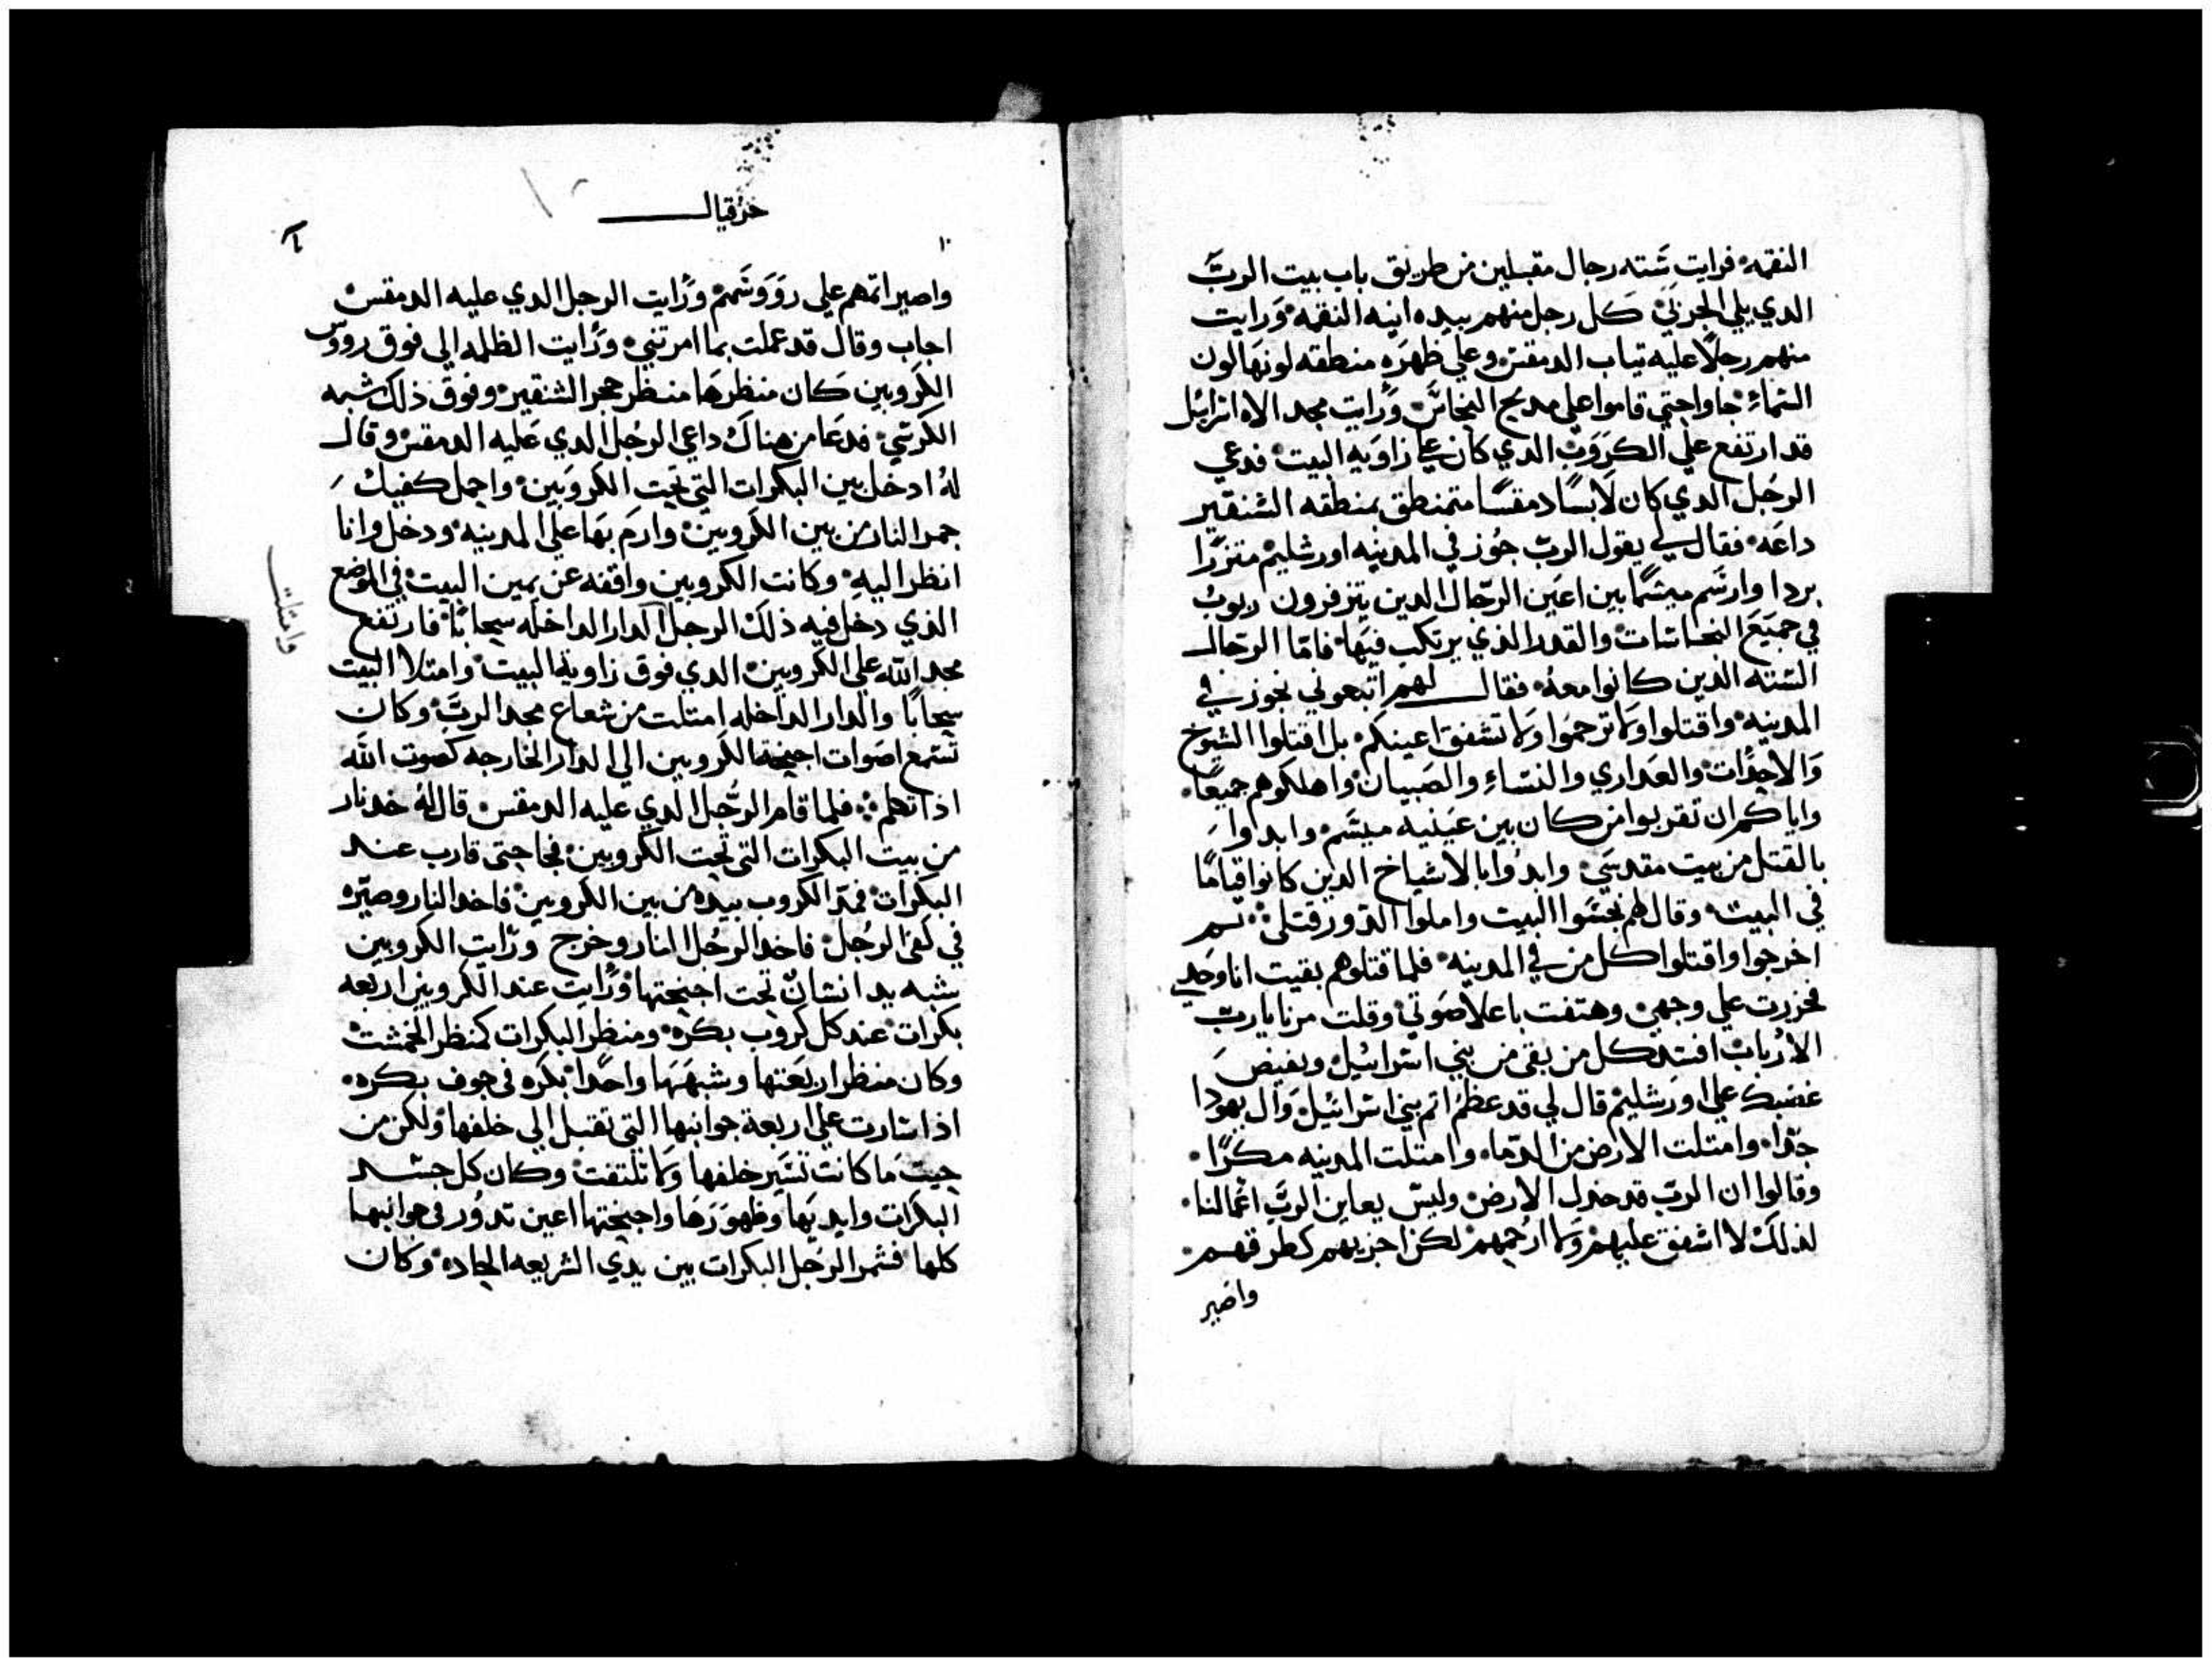 النقمه فرايت سَته رجال مقبلين من طريق باب بيت الربّ
الدي يلي الجربيَ كل رجل منهم بيده انيه النقمه ورايت
منهم رجلًا عليه تياب الدمقس وعلي ظهرَهِ منطقه لونهَا لون
السّماءِ جاوا حتي قاموا علي مدبح النحاسَ ورايت مجد الاه اسرائيل
قد ارتفع علي الكروَب الدي كان علي زاويه البيت فدعي
الرجُل الدي كان لابسًا دمقسًا متمنطق بمنطقه الشنقير
داعَه فقال لي يقول الربّ جُوز في المدينه اورشليم متزرًا
بردا وارسَم ميسَمًا بين اعَين الرّجال الدين يتزفرون
في جميَعَ النجاسَات والقدر الذي يرتكب فيهَا فامّا الرّجال
السّته الذين كانوا معهُ فقال لهم اتبعوني نجوز في
المدينه واقتلوا ولا ترحمَوا ولا تشفق اعينكم بل اقتلوا الشيوخ
وَالاحدَات والعَداري والنسَاءِ والصَبيان واهلكوهم جميعًا
واياكم ان تقربوا من كان بين عَينيه ميسَم وابدوا
بالقتل من بيت مقدسَي وابدوا بالاشياخ الدين كانوا قيامًا
في البيت وقال لهم نجسَوا البيت واملوا الدّور قتلي تم
اخرجوا واقتلوا كل من في المدينه فلما قتلوهم بقيت انا وحَدي
فخررت علي وجهي وهتفت باعلا صَوتي وقلت مرنا يارب
الارُباب افسَد كل من بقي من بني اسَرائيل وبفيض
غضبك علي اورشليم قال لي قد عظمَ اتم بني اسرائيل وَال يهودا
جدًا وامتلت الارض من الدمَاء وامتلت المدينه مكرًا
وقالوا ان الربّ قد خدل الارض وليسَ يعاين الربّ اعمالنا
لذلك لا اشفق عليهم ولا ارحمهم لكن اجزيهم كطرقهم
واصير
حزقيال
واصير اتمهم علي روَوسَهم ورايت الرجل الدي عليه الدمقس
اجاب وقال قد عملت بما امرتني ورَايت الظلمه الي فوق رووس
الكروبين كان منظرها منظر حجر الشنقير وفوق ذلك شبه
الكرسَي فدعَا من هناك داعي الرجُل الدي عَليه الدمقس وقال
لهُ ادخل بين البكرات التي تحت الكروَبين واحمل كفيك
جمر النار من بين الكروبين وارمَ بهَا علي المدينه ودخل وانا
انظر اليهِ وكانت الكروبين واقفه عن يمين البيت في الموضع
الذي دخل فيه ذلك الرجل الدار الداخله سحابًا فارتفع
مجد اللّه علي الكروبين الدي فوق زاوية البيت وامتلا البيت
سحابًا والدار الداخله امتلت من شعاع مجد الربّ وكان
تسَمع اصوات اجنحة الكروبين الي الدار الخارجه كصوت اللّه
اذا تكلم فلما قام الرجُل الدي عليه الدمقس قال لهُ خد نار
من بيت البكرات التي تحت الكروبين فجا حتي قارب عند
البكرات فمدّ الكروب بيده من بين الكروبين فاخد النار وصيّره
في كفي الرجُل فاخد الرجُل النار وخرج ورَايت الكروبين
بشبه يد انسَان تحت اجنحتها ورَايت عند الكروبين اربعه
بكرات عند كل كروب بكره ومنظر البكرات كمنظر الخمشت
وكان منظر اربعَتها وشبههَا واحدًا بكره في جوف بكره
اذا سَارت علي اربعة جوانبها التي تقبل الي خلفها ولكن من
حيت مَا كانت تسَير خلفها ولا تلتفت وكان كل جسَد
البكرات وايديهَا وظهورَهَا واجنحتها اعين تدور في جوانبها
كلها فشمر الرجُل البكرات بين يدي الشريعه الجاده وكان
وامتلت